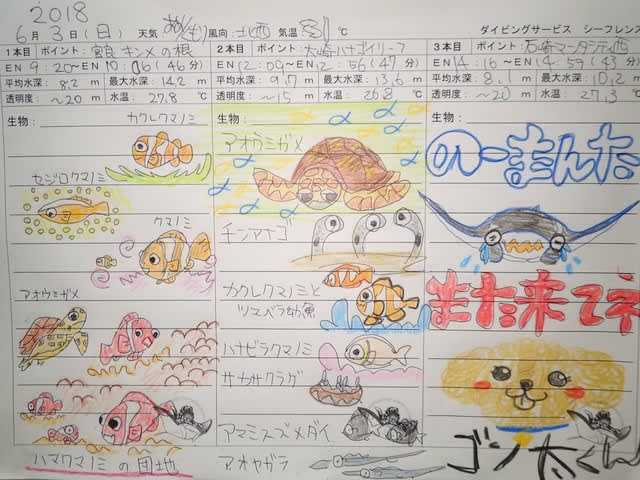 2018
6月3日(日) 天気 あめ/くもり 風向 北西 気温 ℃
ダイビングサービス シーフレンズ
1本目 ポイント: 宮良 キンメの根
EN 9:20~EN 10:06 (46分)
平均水深: 8.2 m 最大水深: 14.2 m
透明度: ~20 m 水温: 27.8 ℃
生物:
カクレクマノミ
セジロクマノミ
クマノミ
アオウミガメ
ハマクマノミの団地
2本目 ポイント: 大崎ハナゴイリーフ
EN 12:09~EN 12:56 (47分)
平均水深: 9.7 m 最大水深: 13.6 m
透明度: ~15 m 水温: 26.8 ℃
生物:
アオウミガメ
チンアナゴ
カクレクマノミと
ツマベラ幼魚
ハナビラクマノミ
サカサクラゲ
アマミスズメダイ
アオヤガラ
3本目 ポイント: 石崎マンタシティ西
EN 14:16~EN 14:59 (43分)
平均水深: 8.1 m 最大水深: 10.2 m
透明度: ~20 m 水温: 27.3 ℃
生物:
のーまんた
また来てネ
ゴン太くん